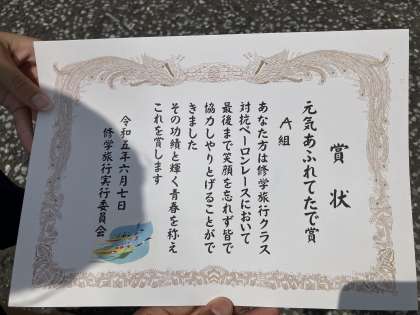 賞状
元気あふれてたで賞
A組
あなた方は修学旅行クラス
対抗ペーロンレースにおいて
最後まで笑顔を忘れず皆で
協力しやりとげることがで
きました
その功績と輝く青春を称え
これを賞します
令和五年六月七日
修学旅行実行委員会